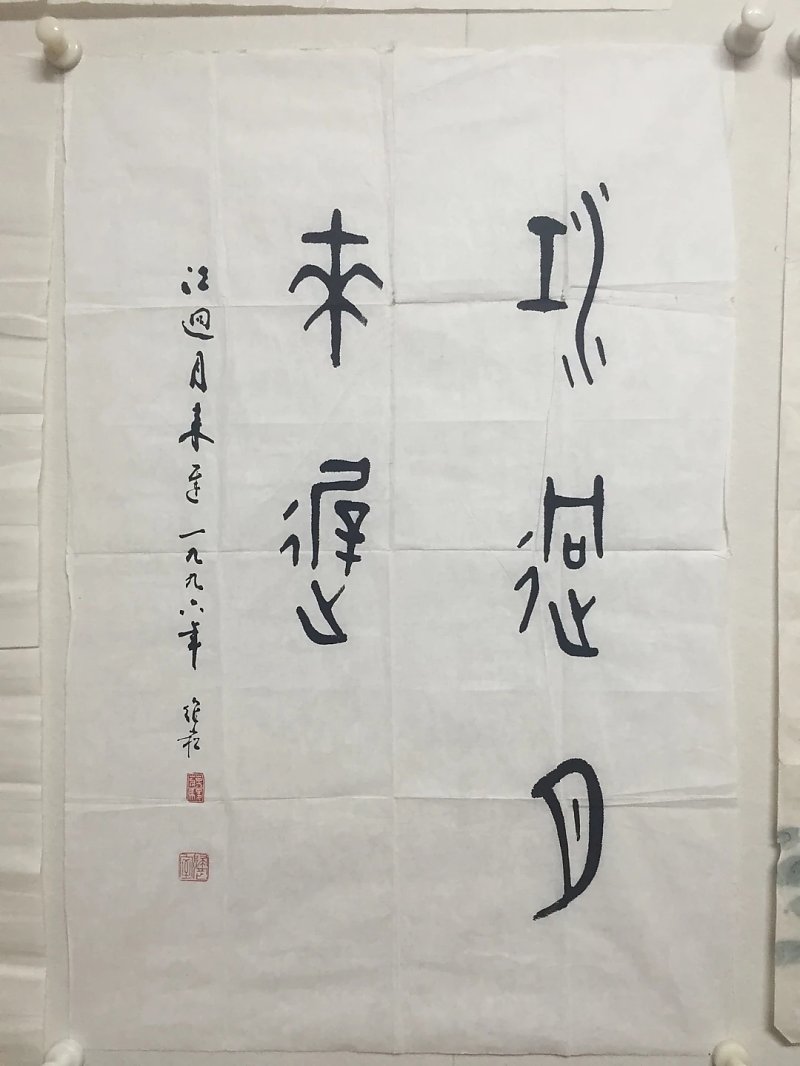 江迥月
來遲
江迥月來遲 一九九六年